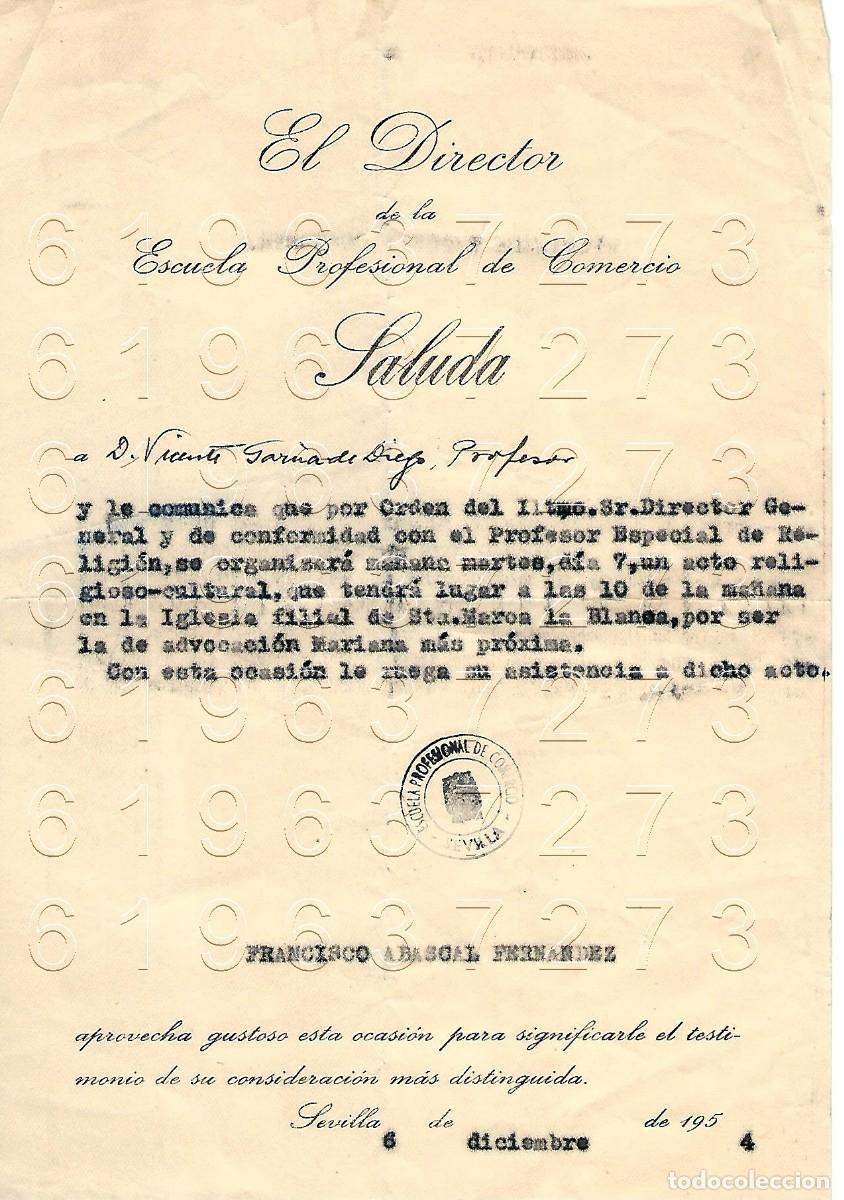 El Director
de la
Escuela Profesional de Comercio
Saluda
a D. Vicente García de Diego, Profesor
y le comunica que por Orden del Iltmo.Sr.Director Ge-
neral y de conformidad con el Profesor Especial de Re-
ligión,se organizará mañana martes,día 7,un acto reli-
gioso-cultural,que tendrá lugar a las 10 de la mañana
en la Iglesia filial de Sta.Marca la Blanca,por ser
la de advocación Mariana más próxima.
Con esta ocasión le ruega su asistencia a dicho acto.
ESCUELA PROFESIONAL DE COMERCIO
- SEVILLA -
FRANCISCO ABASCAL FERNANDEZ
aprovecha gustoso esta ocasión para significarle el testi-
monio de su consideración más distinguida.
Sevilla 6 de diciembre de 1954
619637273
619637273
619637273
619637273
619637273
619637273
619637273
todocoleccion